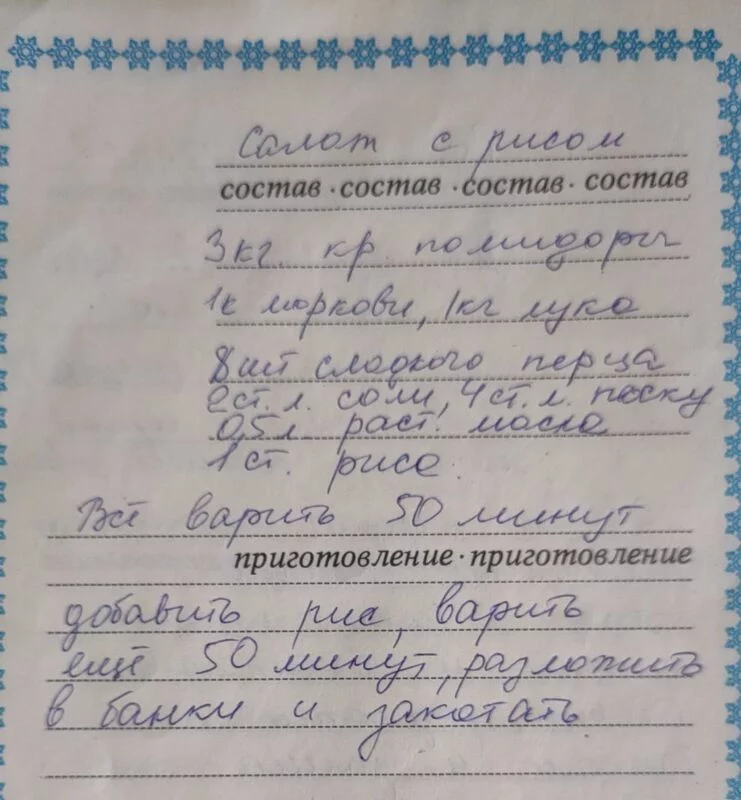 Салат с рисом
состав · состав · состав · состав
3 кг. кр. помидоры
1к моркови, 1кг лука
8 шт сладкого перца
2 ст. л. соли, 4 ст. л. песку
0,5 л раст. масла
1 ст. риса.
Всё варить 50 минут
приготовление · приготовление
добавить рис, варить
ещё 50 минут, разложить
в банки и закатать